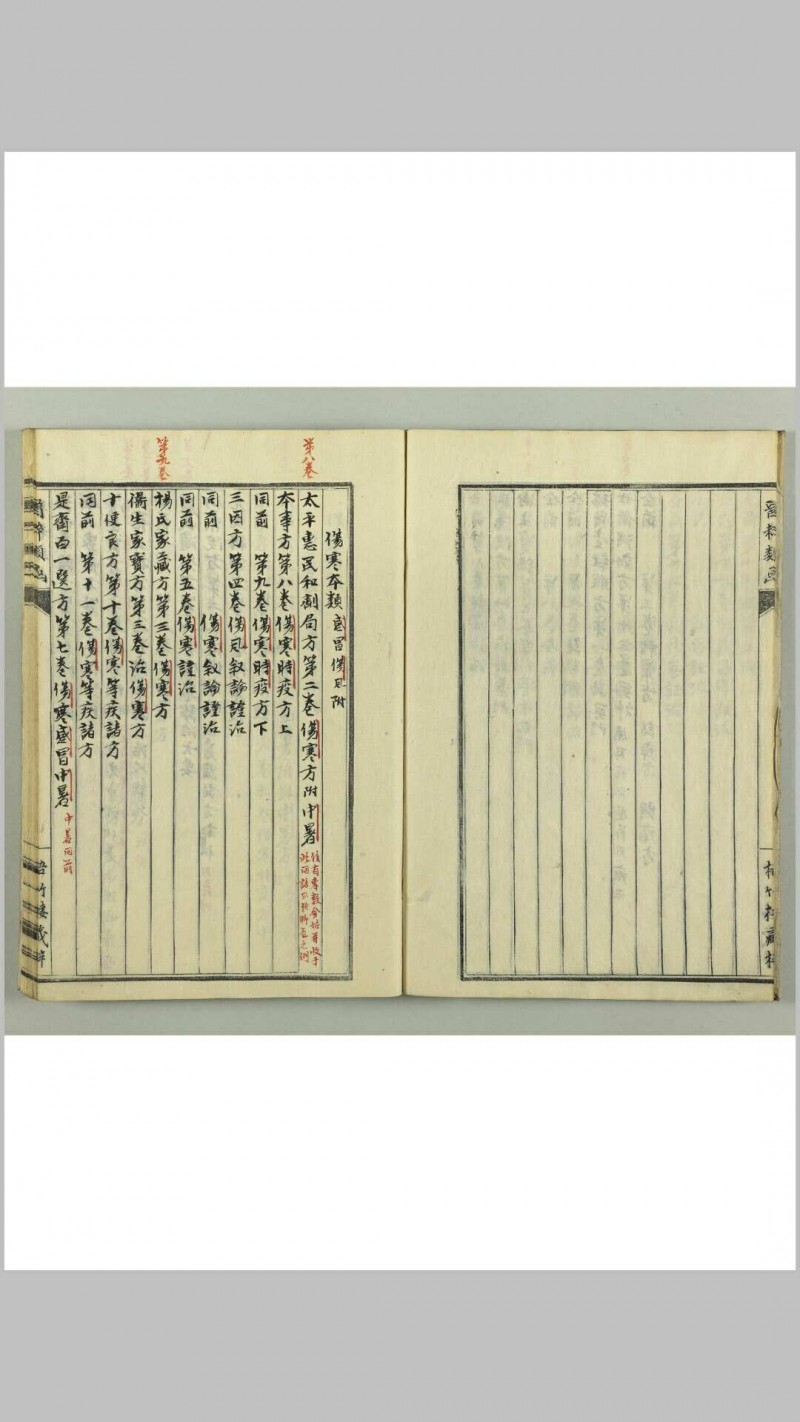 傷寒本類感冒傷風附
第八卷
太平惠民和劑局方第二卷傷寒方附中暑
本事方第八卷傷寒時疫方上
同前 第九卷傷寒時疫方下
三因方第四卷傷風叙論證治
同前 傷寒叙論證治
同前 第五卷傷寒證治
第九卷
楊氏家藏方第三卷傷寒方
衛生家寶方第三卷治傷寒方
十便良方第十卷傷寒等疾諸方
同前 第十一卷傷寒等疾諸方
是齋百一選方第七卷傷寒感冒中暑
中暑同前